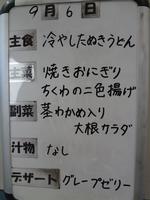 9月6日
主食 冷やしたぬきうどん
主菜 焼きおにぎり
ちくわの二色揚げ
副菜 茎わかめ入り
大根サラダ
汁物 なし
デザート グレープゼリー